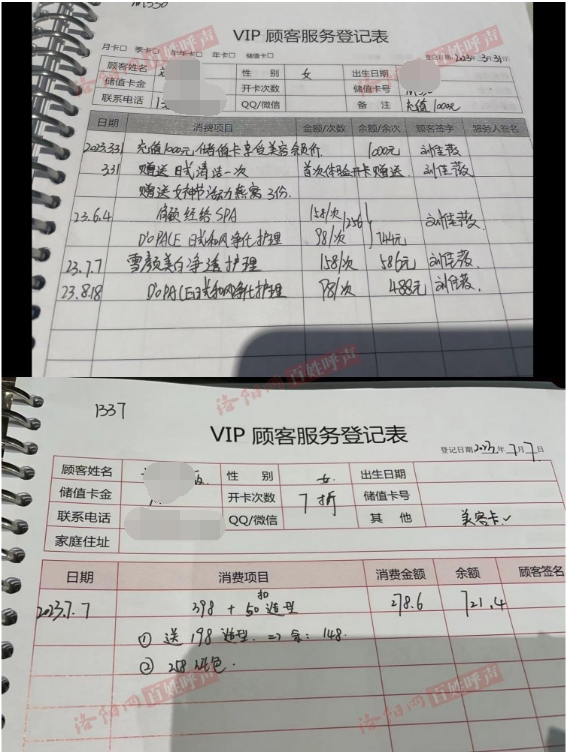 VIP 顾客服务登记表
月卡□ 季卡□ 年卡□ 储值卡□
登记日期:2023年3月31日
顾客姓名 性 别 女 出生日期
储值卡金 开卡次数 储值卡号
联系电话 QQ/微信 备 注 充值1000元
日期 消费项目 金额/次数 余额/余次 顾客签字 服务人签名
2023.3.31 充值1000元储值卡享受美容会员价 1000元 刘佳薇
3.31 赠送日式清洁一次 首次体验开卡赠送 刘佳薇
赠送女神节活力套 3份.
23.6.4 肩颈经络SPA 158/次 256 刘佳薇
DoPACE 日式和风净化护理 98/次 744元
23.7.7 雪颜美白净透护理 158/次 586元 刘佳薇
23.8.18 DoPACE日式和风净化护理 98/次 488元 刘佳薇
洛阳网 百姓呼声
1337
VIP 顾客服务登记表
登记日期2023年7月7日
顾客姓名 性 别 女 出生日期
储值卡金 开卡次数 7折 储值卡号
联系电话 QQ/微信 其 他 美容卡✓
家庭住址
日期 消费项目 消费金额 余额 顾客签名
2023.7.7 398 + 50造型 278.6 721.4
① 送198造型. => 余: 148.
② 258
洛阳网 百姓呼声